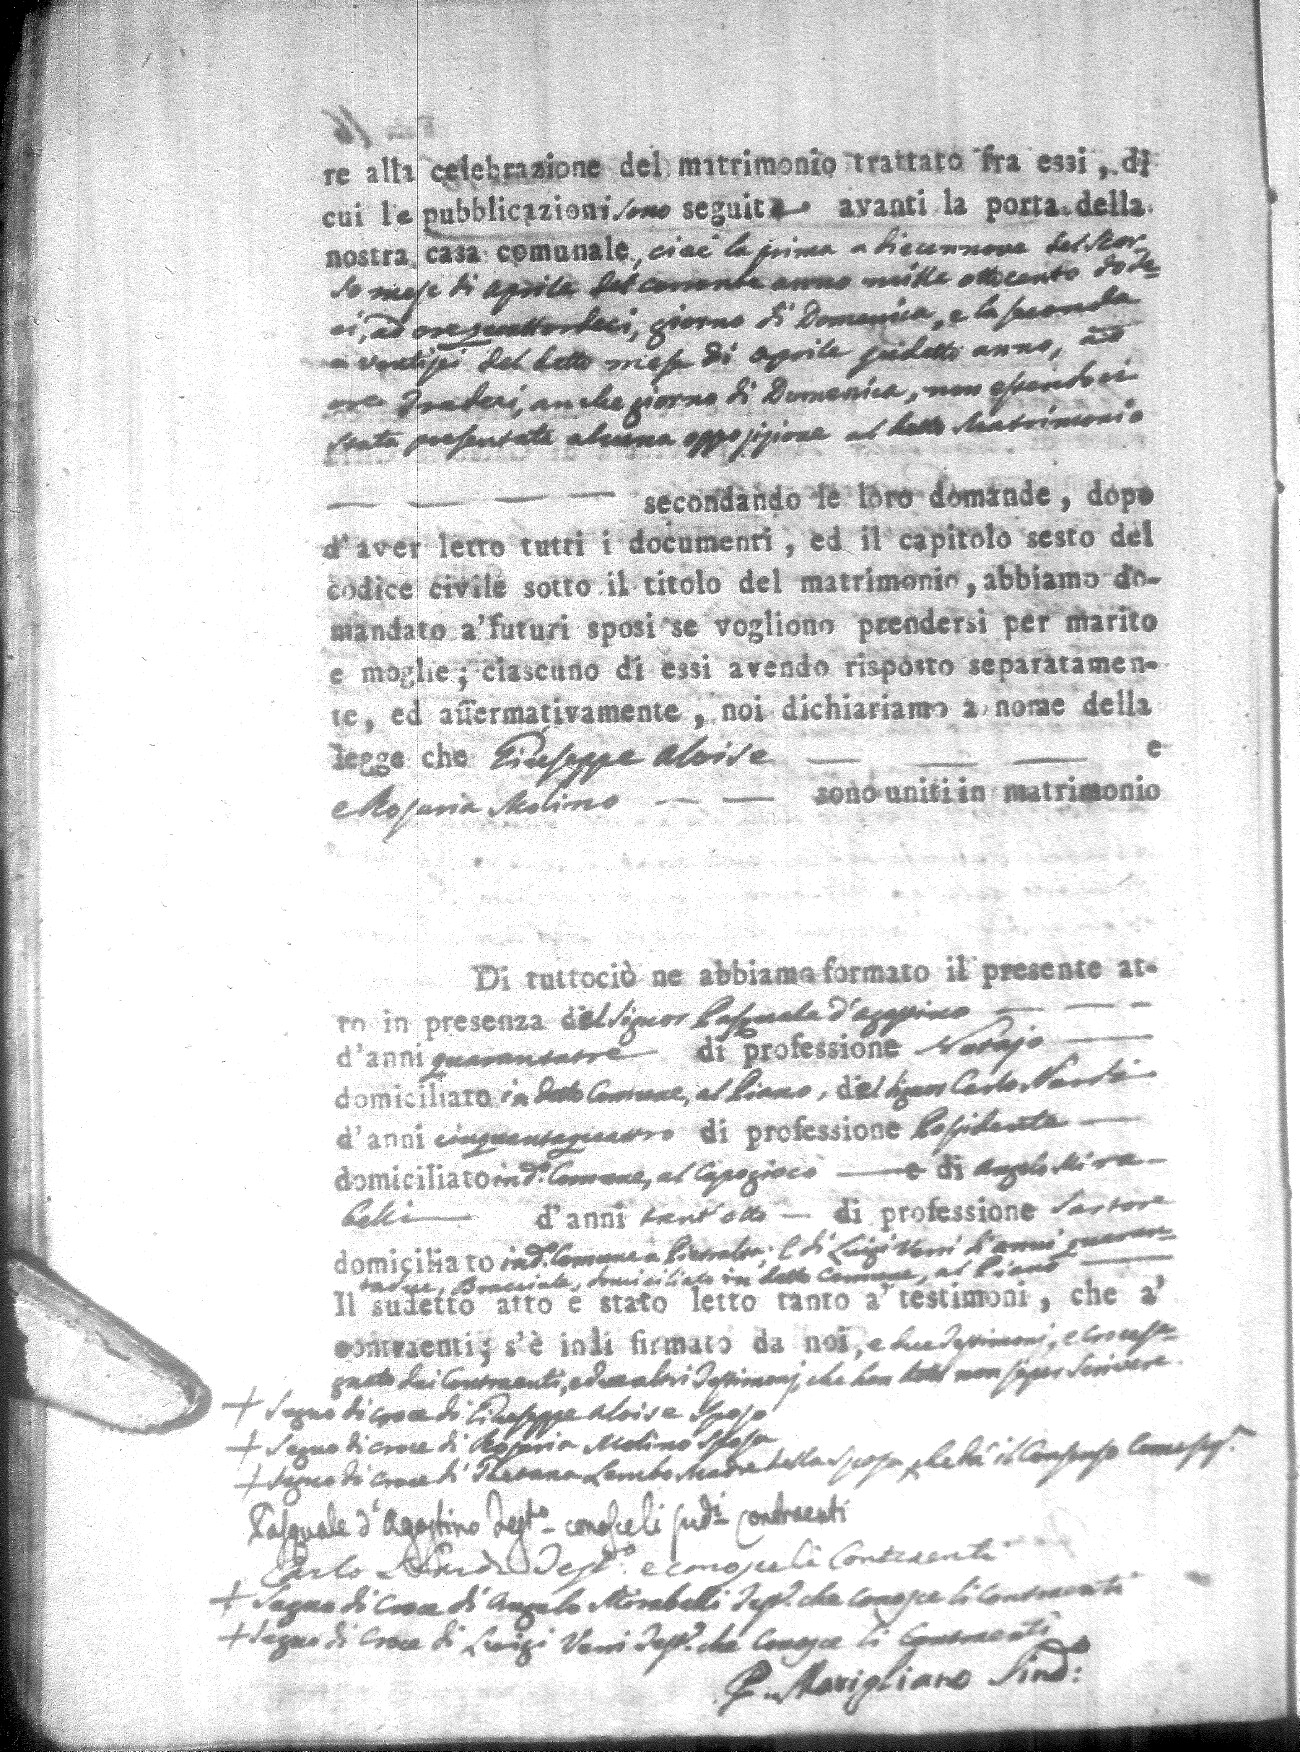 re alla celebrazione del matrimonio trattato fra essi, di
cui le pubblicazioni sono seguite avanti la porta della
nostra casa comunale, cioè la prima a diecennove del scor-
so mese di aprile del corrente anno mille ottocento dode-
ci, ad ore quattordeci, giorno di Domenica, e la seconda
a ventisei del detto mese di aprile sudetto anno, ad
ore tredeci, anche giorno di Domenica, non essendoci
stata presentata alcuna opposizione al detto Matrimonio
secondando le loro domande, dopo
d'aver letto tutti i documenti, ed il capitolo sesto del
codice civile sotto il titolo del matrimonio, abbiamo do-
mandato a' futuri sposi se vogliono prendersi per marito
e moglie; ciascuno di essi avendo risposto separatamen-
te, ed affermativamente, noi dichiariamo a nome della
legge che Giuseppe Aloise e
Rosaria Molino sono uniti in matrimonio
Di tuttociò ne abbiamo formato il presente at-
to in presenza del Signor Pasquale d'Agostino
d'anni quarantatre di professione Notajo
domiciliato in detto Comune, al Piano, del Signor Carlo Nardi
d'anni cinquantaquattro di professione Possidente
domiciliato in d.o Comune, al Capogioco e di Angelo Mira-
belli d'anni trent'otto di professione Sartore
domiciliato in d.o Comune a e di Luigi Verri d'anni quaran-
tadue, Bracciale, domiciliato in detto Comune, al Piano
Il sudetto atto è stato letto tanto a' testimoni, che a'
contraenti; s'è indi firmato da noi, e due Testimonj, e crocese-
gnato dai Contraenti, e due altri Testimonj, che han detto non saper scrivere.
+ Segno di croce di Giuseppe Aloise Sposo
+ Segno di croce di Rosaria Molino Sposa
+ Segno di croce di Theresa Lembo Madre della sposa, che dà il Consenso come sop.a
Pasquale d'Agostino Test.o conosce li sud.i contraenti
Carlo Nardi Test.o e conosce li Contraenti
+ Segno di Croce di Angelo Mirabelli Test.o che conosce li Contraenti
+ Segno di Croce di Luigi Verri Test.o che conosce li Contraenti
P. Marigliano Sind.: